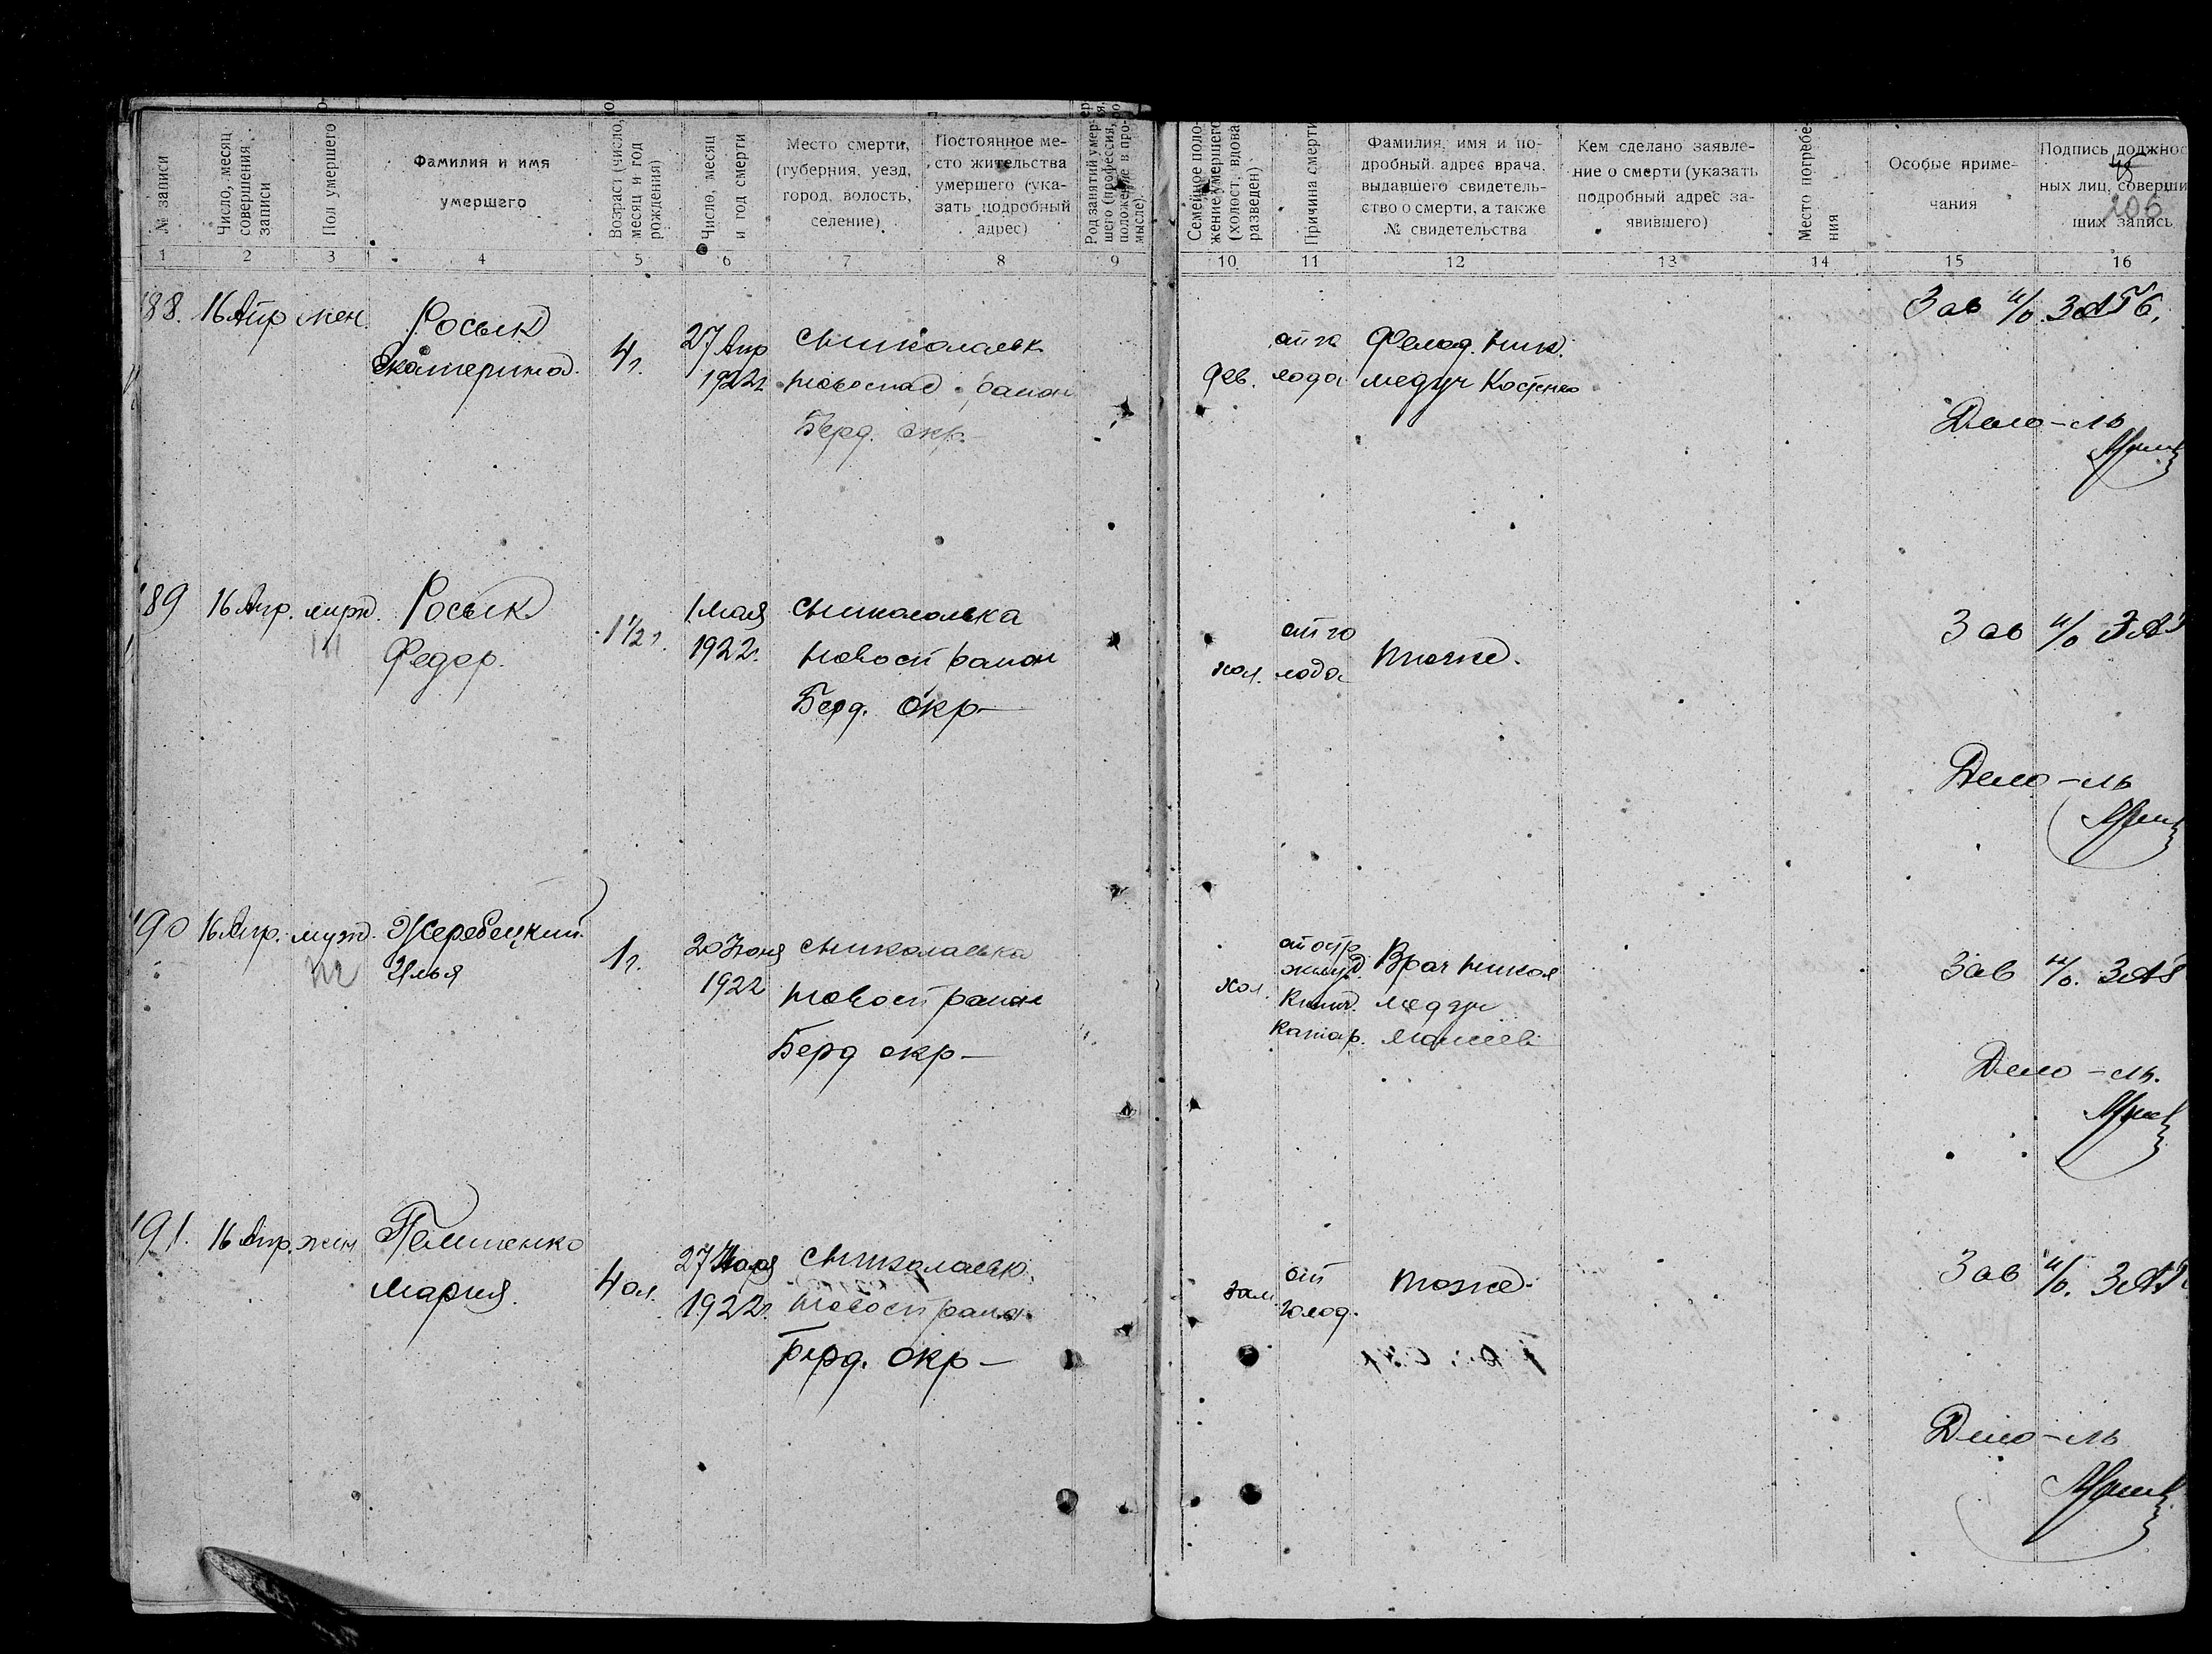 № записи
Число, месяц
совершения
записи
Пол умершего
Фамилия и имя
умершего
Возраст (число,
месяц и год
рождения)
Число, месяц
и год смерти
Место смерти,
(губерния, уезд,
город, волость,
селение)
Постоянное ме-
сто жительства
умершего (ука-
зать подробный
адрес)
Род занятий умер-
шего (профессия,
положение в про-
мысле).
Семейное поло-
жение умершего
(холост, вдова
разведен)
Причина смерти
Фамилия, имя и по-
дробный адрес врача,
выдавшего свидетель-
ство о смерти, а также
№ свидетельства
Кем сделано заявле-
ние о смерти (указать
подробный адрес за-
явившего)
Место погребе-
ния
Особые приме-
чания
Подпись должнос
ных лиц, соверши
ших запись
206
1 2 3 4 5 6 7 8 9 10 11 12 13 14 15 16
188. 16 Апр жен.
Росык
Екатерина.
4 г.
27 Апр
1922г
Николаевк
Новоспас район
Берд. окр.
дев.
от го
лода
Фельд. Ник.
медуч Костенко
Зав п/о. ЗАГС.
Дело-ль
189 16 Апр. муж.
Росык
Федор.
1 1/2 г.
1 мая
1922г.
Николаевка
Новосп район
Берд. окр
хол.
от го
лода
тоже.
Зав п/о ЗАГ
Дело-ль
190 16 Апр. муж.
Жеребецкий
Илья
1 г.
20 Июня
1922
Николаевка
Новосп район
Берд окр
хол.
от остр
желуд.
Кишч.
катар.
Врач Никол
медуч
Зав п/о. ЗАГ
Дело-ль.
191. 16 Апр. жен
Мария.
27
1922г.
Николаевк.
Новосп район
Берд. окр
зам
от
голод.
тоже.
Зав п/о. ЗАГ
Дело-ль